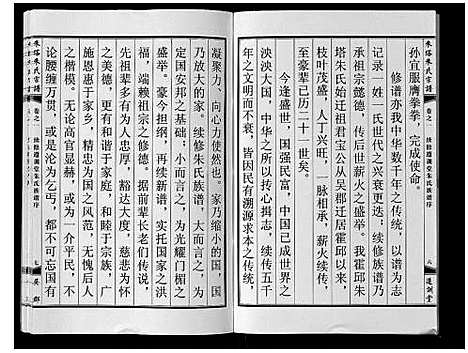 朱塔朱氏宗譜
卷之一 续修遵训堂朱氏族谱序
六 遵训堂
孙宜服膺拳拳，完成使命。
修谱亦我中华数千年之传统，以谱为志
记录一姓一氏世代之兴衰更迭；续修族谱
承祖宗懿德，传后世薪火之盛举。我霍邱朱
塔朱氏始迁祖君宝公从吴郡迁居霍邱以来，
枝叶茂盛，人丁兴旺，一脉相承，薪火续传，
至豪辈已历二十一世矣。
今逢盛世，国强民富，中国已成世界之
泱泱大国，十余亿之后以抟心揖志，续传千
年之文明而不衰，皆因民有溯源求本之传统，
凝聚力、向心力使然也。家乃缩小的国，国
乃放大的家。续修朱氏族谱，大而言之，为
定国安邦之基础；小而言之，为光耀门楣之
盛事。豪今担纲，再续新谱，实托国家之洪
福，端赖祖宗之修德。据前辈长老们传说：
先祖辈多有谦恭仁厚，豁达大度，慈悲为怀
之美德，更有和谐于家庭，和睦于宗族，
施恩惠于家乡，精忠为国之风范，无愧后人
之楷模。无论高官显赫，或为一介平民，不
论腰缠万贯，或是沦为乞丐，都不可忘国有
朱塔朱氏宗譜
卷之一 续修遵训堂朱氏族谱序
七 吴郡